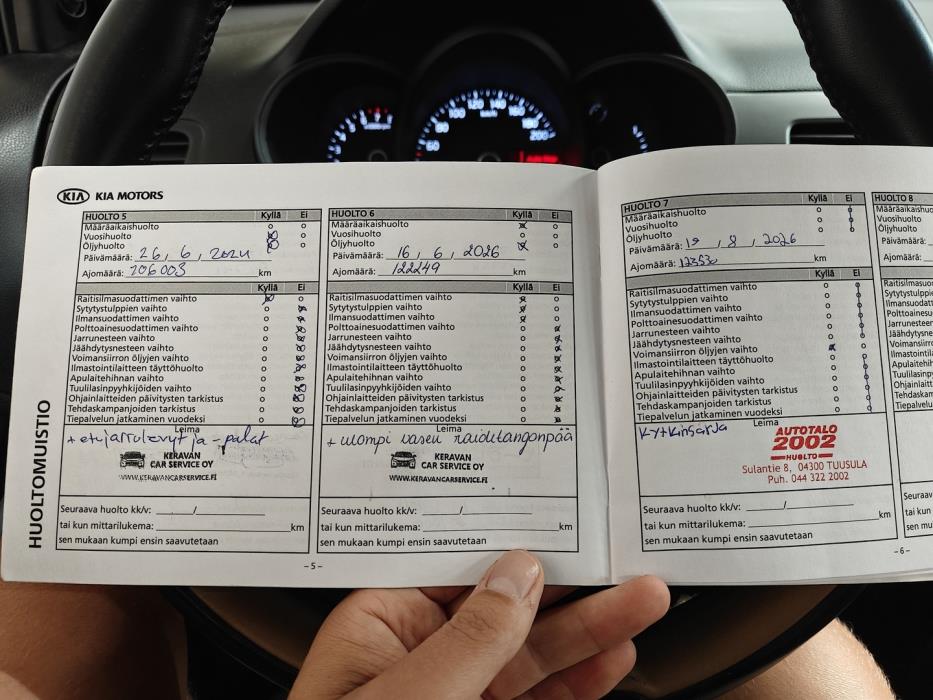 KIA KIA MOTORS
HUOLTOMUISTIO
HUOLTO 5 Kyllä Ei
Määräaikaishuolto
Vuosihuolto
Öljyhuolto
Päivämäärä: 26, 6, 2024
Ajomäärä: 106003 km
Kyllä Ei
Raitisilmasuodattimen vaihto
Sytytystulppien vaihto
Ilmansuodattimen vaihto
Polttoainesuodattimen vaihto
Jarrunesteen vaihto
Jäähdytysnesteen vaihto
Voimansiirron öljyjen vaihto
Ilmastointilaitteen täyttöhuolto
Apulaitehihnan vaihto
Tuulilasinpyyhkijöiden vaihto
Ohjainlaitteiden päivitysten tarkistus
Tehdaskampanjoiden tarkistus
Tiepalvelun jatkaminen vuodeksi
Leima
+ etujarrulevyt ja -palat
KERAVAN
CAR SERVICE OY
WWW.KERAVANCARSERVICE.FI
Seuraava huolto kk/v: /
tai kun mittarilukema: km
sen mukaan kumpi ensin saavutetaan
-5-
HUOLTO 6 Kyllä Ei
Määräaikaishuolto
Vuosihuolto
Öljyhuolto
Päivämäärä: 16, 6, 2026
Ajomäärä: 122249 km
Kyllä Ei
Raitisilmasuodattimen vaihto
Sytytystulppien vaihto
Ilmansuodattimen vaihto
Polttoainesuodattimen vaihto
Jarrunesteen vaihto
Jäähdytysnesteen vaihto
Voimansiirron öljyjen vaihto
Ilmastointilaitteen täyttöhuolto
Apulaitehihnan vaihto
Tuulilasinpyyhkijöiden vaihto
Ohjainlaitteiden päivitysten tarkistus
Tehdaskampanjoiden tarkistus
Tiepalvelun jatkaminen vuodeksi
Leima
+ ulompi vasen raidetangonpää
KERAVAN
CAR SERVICE OY
WWW.KERAVANCARSERVICE.FI
Seuraava huolto kk/v: /
tai kun mittarilukema: km
sen mukaan kumpi ensin saavutetaan
HUOLTO 7 Kyllä Ei
Määräaikaishuolto
Vuosihuolto
Öljyhuolto
Päivämäärä: 19, 8, 2026
Ajomäärä: 123530 km
Kyllä Ei
Raitisilmasuodattimen vaihto
Sytytystulppien vaihto
Ilmansuodattimen vaihto
Polttoainesuodattimen vaihto
Jarrunesteen vaihto
Jäähdytysnesteen vaihto
Voimansiirron öljyjen vaihto
Ilmastointilaitteen täyttöhuolto
Apulaitehihnan vaihto
Tuulilasinpyyhkijöiden vaihto
Ohjainlaitteiden päivitysten tarkistus
Tehdaskampanjoiden tarkistus
Tiepalvelun jatkaminen vuodeksi
Leima
Kytkinsarja
AUTOTALO
2002
HUOLTO
Sulantie 8, 04300 TUUSULA
Puh. 044 322 2002
Seuraava huolto kk/v: /
tai kun mittarilukema: km
sen mukaan kumpi ensin saavutetaan
-6-
HUOLTO 8
Vuosihuolto
Öljyhuolto
60 80 100 120 140 160 180 200
km/h